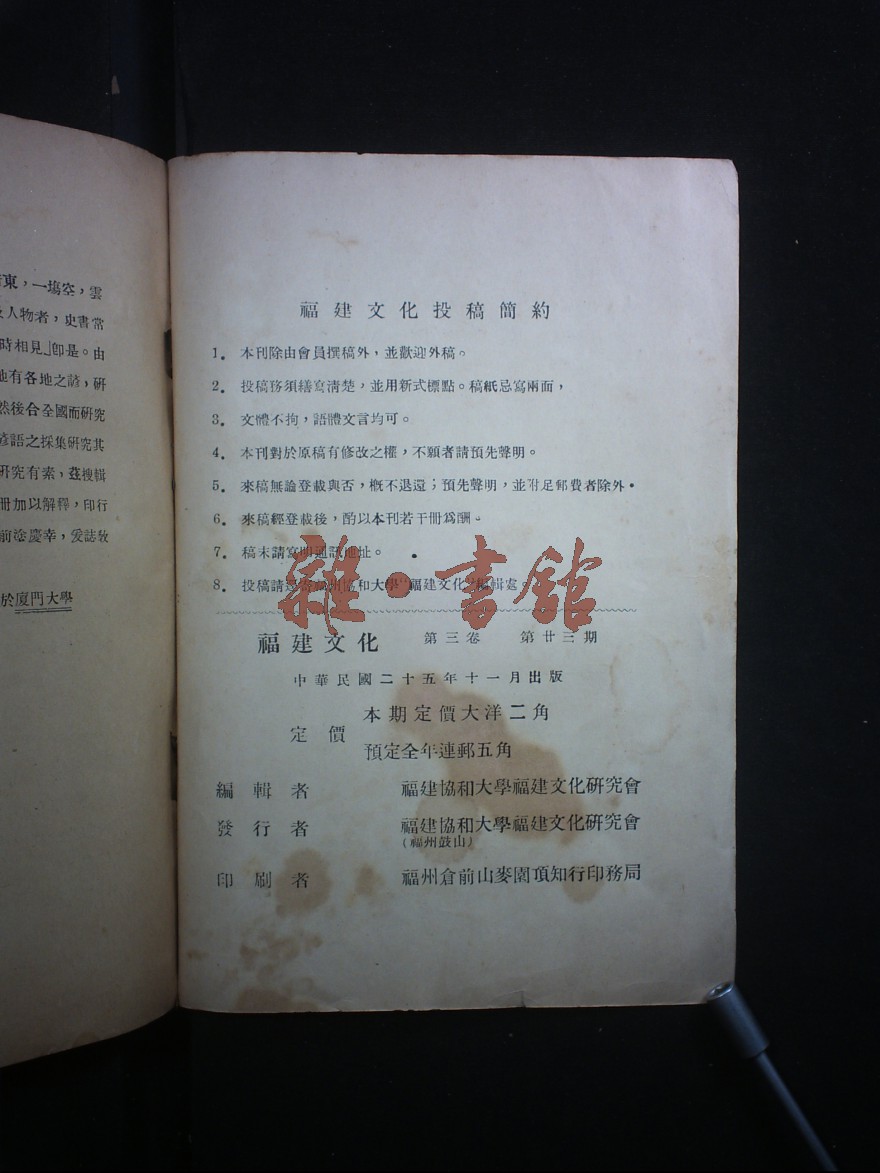 東，一塲空，雲
人物者，史書常
時相見」卽是。由
地有各地之諺，硏
然後合全國而硏究
諺語之採集硏究其
硏究有素，茲搜輯
冊加以解釋，印行
前塗慶幸，爰誌敎
於廈門大學
福建文化投稿簡約
1. 本刊除由會員撰稿外，並歡迎外稿。
2. 投稿務須繕寫淸楚，並用新式標點。稿紙忌寫兩面，
3. 文體不拘，語體文言均可。
4. 本刊對於原稿有修改之權，不願者請預先聲明。
5. 來稿無論登載與否，槪不退還；預先聲明，並附足郵費者除外。
6. 來稿經登載後，酌以本刊若干冊爲酬。
7. 稿末請寫明通訊地址。
8. 投稿請逕寄福州協和大學“福建文化”編輯處。
雜·書館
福建文化 第三卷 第廿三期
中華民國二十五年十一月出版
定價 本期定價大洋二角
預定全年連郵五角
編輯者 福建協和大學福建文化硏究會
發行者 福建協和大學福建文化硏究會
(福州鼓山)
印刷者 福州倉前山麥園頂知行印務局